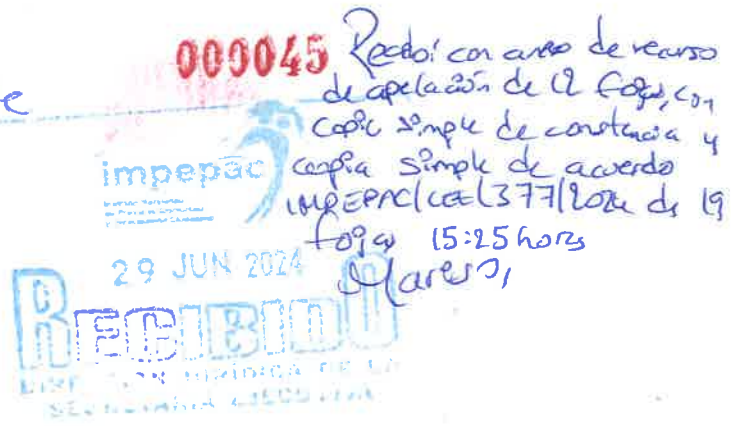 000045 Recibí con anexo de recurso
de apelación de 12 fojas, con
copia simple de constancia y
copia simple de acuerdo
IMPEPAC/CEE/377/2024 de 19
fojas 15:25 hors
impepac
29 JUN 2024
RECIBIDO
DIRECCIÓN JURÍDICA DE LA
SECRETARÍA EJECUTIVA